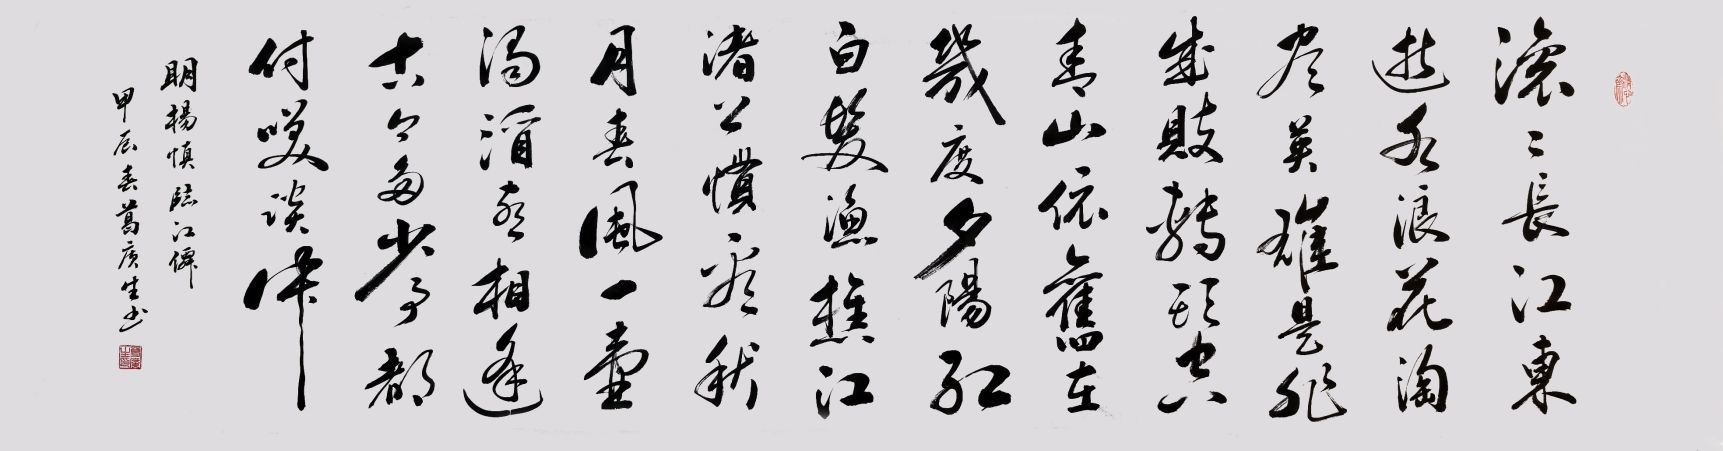 滚〻長江東
逝水浪花淘
尽英雄是非
成敗轉頭空
青山依舊在
幾度夕陽紅
白髮漁樵江
渚上慣看秋
月春風一壷
濁酒喜相逢
古今多少事都
付笑談中
明楊慎臨江僊
甲辰春葛廣生书